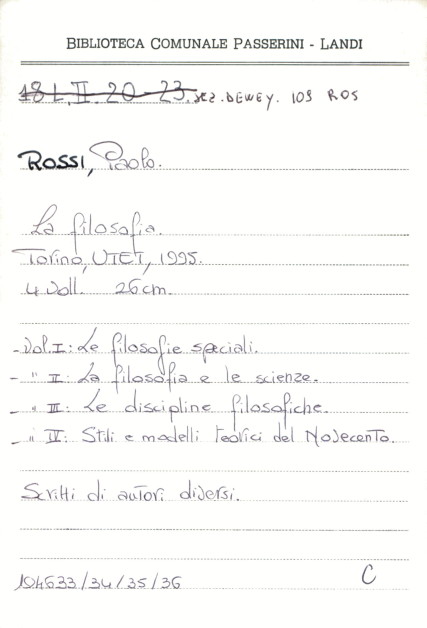 BIBLIOTECA COMUNALE PASSERINI - LANDI
18 L.II.20-23. SEZ.DEWEY. 109 ROS
ROSSI, Paolo.
La filosofia.
Torino, UTET, 1995.
4 Voll. 26cm.
- Vol.I: Le filosofie speciali.
- " II: La filosofia e le scienze.
- " III: Le discipline filosofiche.
- " IV: Stili e modelli teorici del Novecento.
Scritti di autori diversi.
104633/34/35/36 C